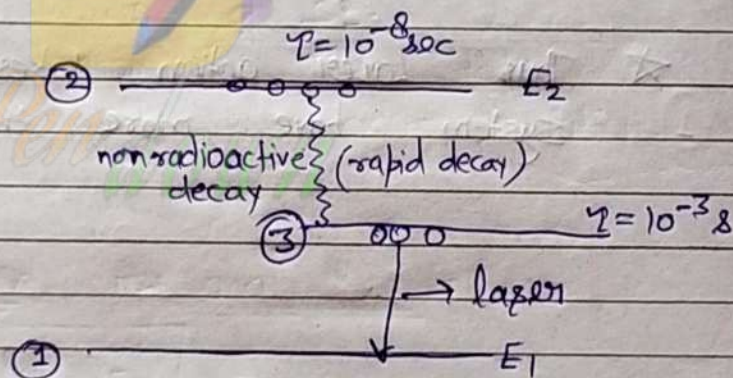 τ = 10⁻⁸ sec
② E₂
non radioactive (rapid decay)
decay
③ τ = 10⁻³ s
→ laser
① E₁